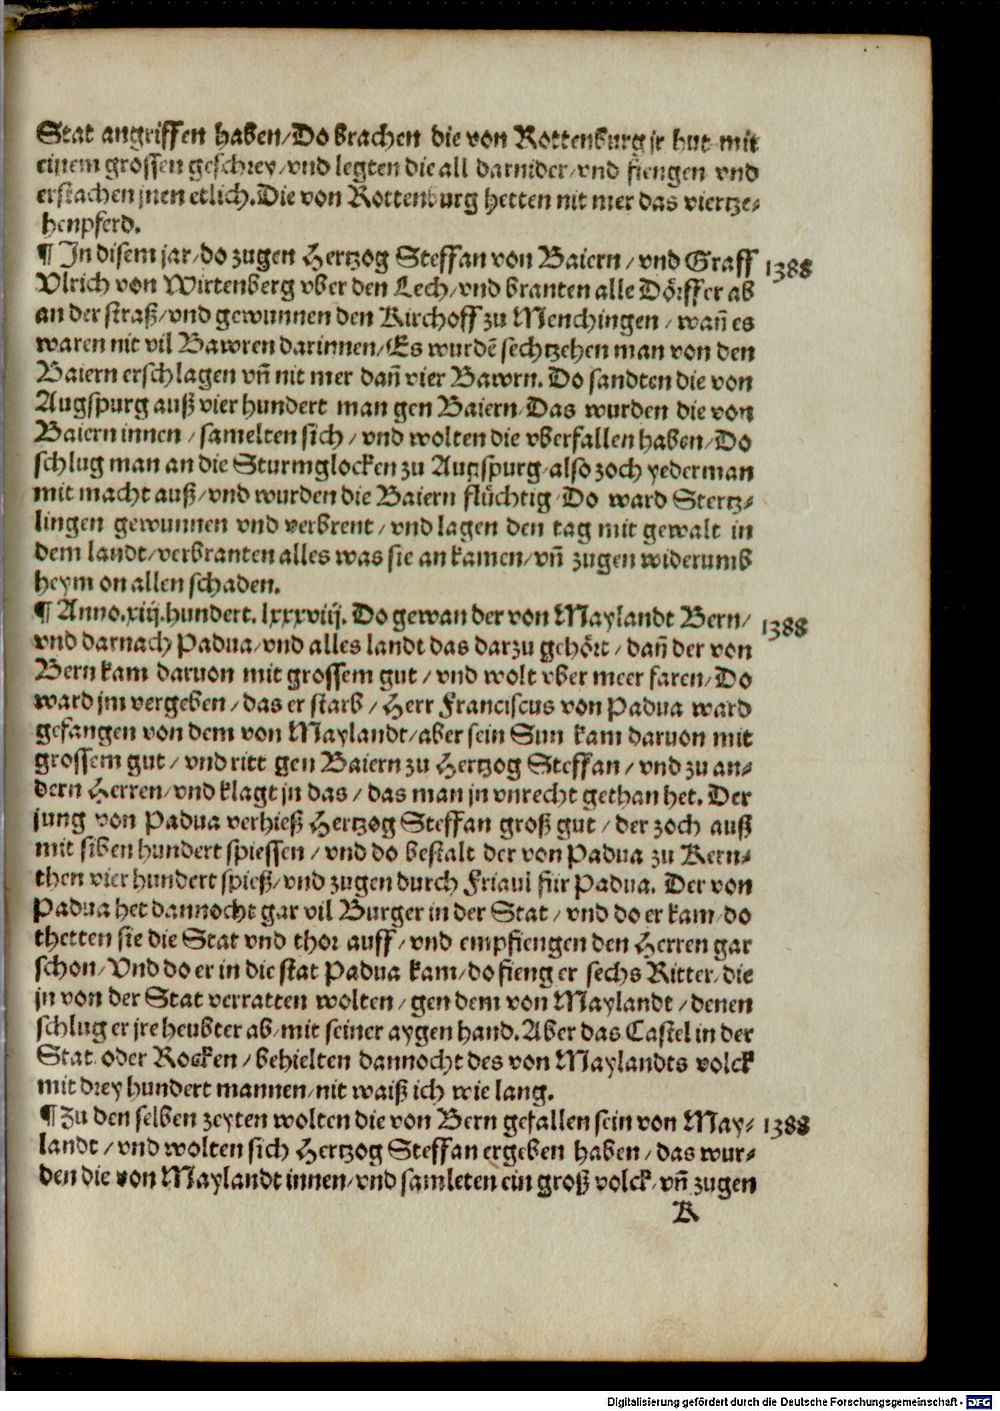 Stat angriffen haben/Do brachen die von Rottenburg jr hut mit
einem grossen geschrey/vnd legten die all darnider/vnd fiengen vnd
erstachen jnen etlich.Die von Rottenburg hetten nit mer das viertze-
henpferd.
¶ In disem jar/do zugen Hertzog Steffan von Baiern/vnd Graff 1388
Vlrich von Wirtenberg vber den Lech/vnd branten alle Dörffer ab
an der straß/vnd gewunnen den Kirchoff zu Menchingen/wañ es
waren nit vil Bawren darinnen/Es wurdē sechtzehen man von den
Baiern erschlagen vñ nit mer dañ vier Bawrn. Do sandten die von
Augspurg auß vier hundert man gen Baiern/Das wurden die von
Baiern innen/samelten sich/vnd wolten die vberfallen haben/Do
schlug man an die Sturmglocken zu Augspurg/also zoch yederman
mit macht auß/vnd wurden die Baiern flüchtig/Do ward Stertz-
lingen gewunnen vnd verbrent/vnd lagen den tag mit gewalt in
dem landt/verbranten alles was sie an kamen/vñ zugen widerumb
heym on allen schaden.
¶ Anno.xiij.hundert.lxxxviij. Do gewan der von Maylandt Bern/ 1388
vnd darnach Padua/vnd alles landt das darzu gehört/dañ der von
Bern kam daruon mit grossem gut/vnd wolt vber meer faren/Do
ward jm vergeben/das er starb/Herr Franciscus von Padua ward
gefangen von dem von Maylandt/aber sein Sun kam daruon mit
grossem gut/vnd ritt gen Baiern zu Hertzog Steffan/vnd zu an-
dern Herren/vnd klagt jn das/das man jn vnrecht gethan het. Der
jung von Padua verhieß Hertzog Steffan groß gut/der zoch auß
mit siben hundert spiessen/vnd do bestalt der von Padua zu Kern-
then vier hundert spieß/vnd zugen durch Friaui für Padua. Der von
Padua het dannocht gar vil Burger in der Stat/vnd do er kam/do
thetten sie die Stat vnd thor auff/vnd empfiengen den Herren gar
schon/Vnd do er in die stat Padua kam/do fieng er sechs Ritter/die
jn von der Stat verratten wolten/gen dem von Maylandt/denen
schlug er jre heubter ab/mit seiner aygen hand.Aber das Castel in der
Stat oder Rocken/behielten dannocht des von Maylandts volck
mit drey hundert mannen/nit waiß ich wie lang.
¶ Zu den selben zeyten wolten die von Bern gefallen sein von May- 1388
landt/vnd wolten sich Hertzog Steffan ergeben haben/das wur-
den die von Maylandt innen/vnd samleten ein groß volck/vñ zugen
K
Digitalisierung gefördert durch die Deutsche Forschungsgemeinschaft - DFG